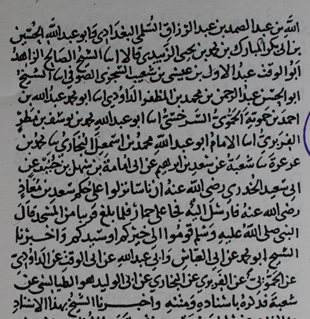 الله بن عبد الصمد بن عبد الرزاق السلمي البغدادي وابو عبد الله الحسين
بن ابي بكر المبارك بن محمد بن يحيى الزبيدي قالا انا الشيخ الصالح الزاهد
ابو الوقت عبد الاول بن عيسى بن شعيب السجزي الصوفي انا الشيخ
ابو الحسن عبد الرحمن بن محمد بن المظفر الداودي انا ابو محمد عبد الله بن
احمد بن حموية الحموي السرخسي انا ابو عبد الله محمد بن يوسف بن مطر
الفربري انا الامام ابو عبد الله محمد بن اسمعيل البخاري نا محمد بن
عرعرة نا شعبة عن سعد بن ابراهيم عن ابي امامة بن سهل بن حنيف عن
ابي سعيد الخدري رضي الله عنه ان ناسا نزلوا على حكم سعد بن معاذ
رضي الله عنه فارسل اليه فجا على حمار فلما بلغ قريبا من المسجد قال
النبي صلى الله عليه وسلم قوموا الى خيركم او سيدكم واخبرنا
الشيخ ابو محمد عن ابي العباس وابي عبد الله عن ابي الوقت عن الداودي
عن الحموي عن الفربري عن البخاري عن ابي الوليد هو الطيالسي عن
شعبة فذكره باسناده ومتنه واخبرنا الشيخ بهذا الاسناد